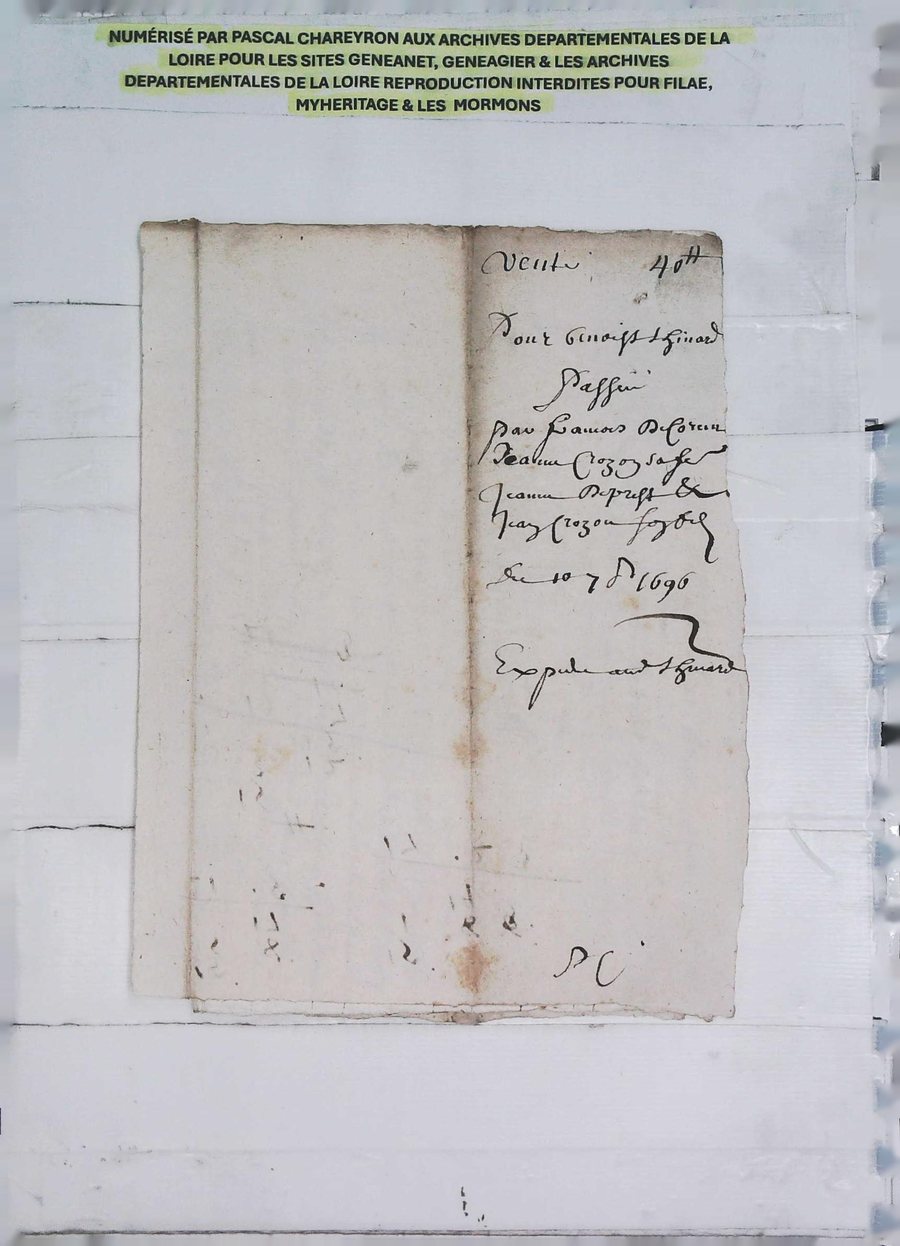 NUMÉRISÉ PAR PASCAL CHAREYRON AUX ARCHIVES DEPARTEMENTALES DE LA
LOIRE POUR LES SITES GENEANET, GENEAGIER & LES ARCHIVES
DEPARTEMENTALES DE LA LOIRE REPRODUCTION INTERDITES POUR FILAE,
MYHERITAGE & LES MORMONS
Vente 40tt
Pour benoist thinard
Passée
Par francois
Jeanne Crozon sa fe
Jeanne &
Jean Crozon
Du 10 7br 1696
Expedié aud thinard
P C